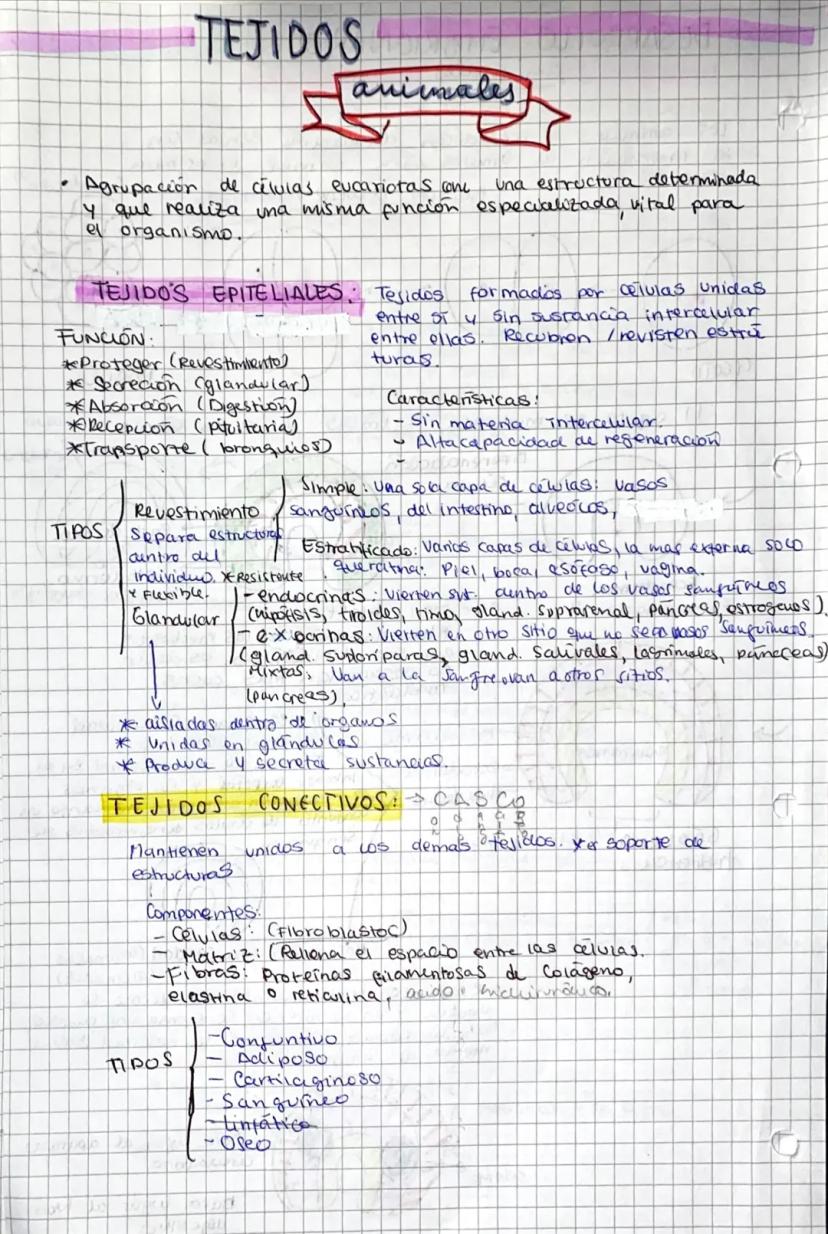 TEJIDOS
animales
• Agrupación de células eucariotas con una estructura determinada
y que realiza una misma función especializada, vital para
el organismo.
TEJIDOS EPITELIALES: Tejidos formados por células unidas
entre sí y sin sustancia intercelular
entre ellas. Recubren / revisten estruc
turas.
FUNCIÓN:
* Proteger (Revestimiento)
* Secreción (glandular)
* Absorción (Digestión)
* Recepción (pituitaria)
* Transporte (bronquios)
Características:
- Sin materia intercelular.
- Alta capacidad de regeneración
-
TIPOS
Revestimiento
Separa estructuras
dentro del
individuo. * Resistente
* Flexible.
Simple: Una sola capa de células: vasos
sanguíneos, del intestino, alveolos,
Estratificado: Varias capas de células, la mas externa solo
queratina: Piel, boca, esófago, vagina.
Glandular
- endocrinas: Vierten sust. dentro de los vasos sanguíneos
(hipófisis, tiroides, timo, gland. suprarenal, páncreas, estrogenos).
- exocrinas: Vierten en otro sitio que no sean vasos sanguíneos
(gland. sudoríparas, gland. salivales, lagrimales, páncreas)
Mixtas: Van a la sangre o van a otros sitios.
(pancreas).
* aisladas dentro de órganos
* Unidas en glándulas
* Produce y secreta sustancias.
TEJIDOS CONECTIVOS: → CASCO
Mantienen unidos a los demas tejidos. * er soporte de
estructuras
Componentes:
- Células: (Fibroblastoc)
- Matriz: (Rellena el espacio entre las células.
- Fibras: Proteínas filamentosas de colágeno,
elastina o reticulina, acido
TIPOS
- Conjuntivo
- Adiposo
- Cartilaginoso
- Sanguíneo
- Linfático
- Oseo